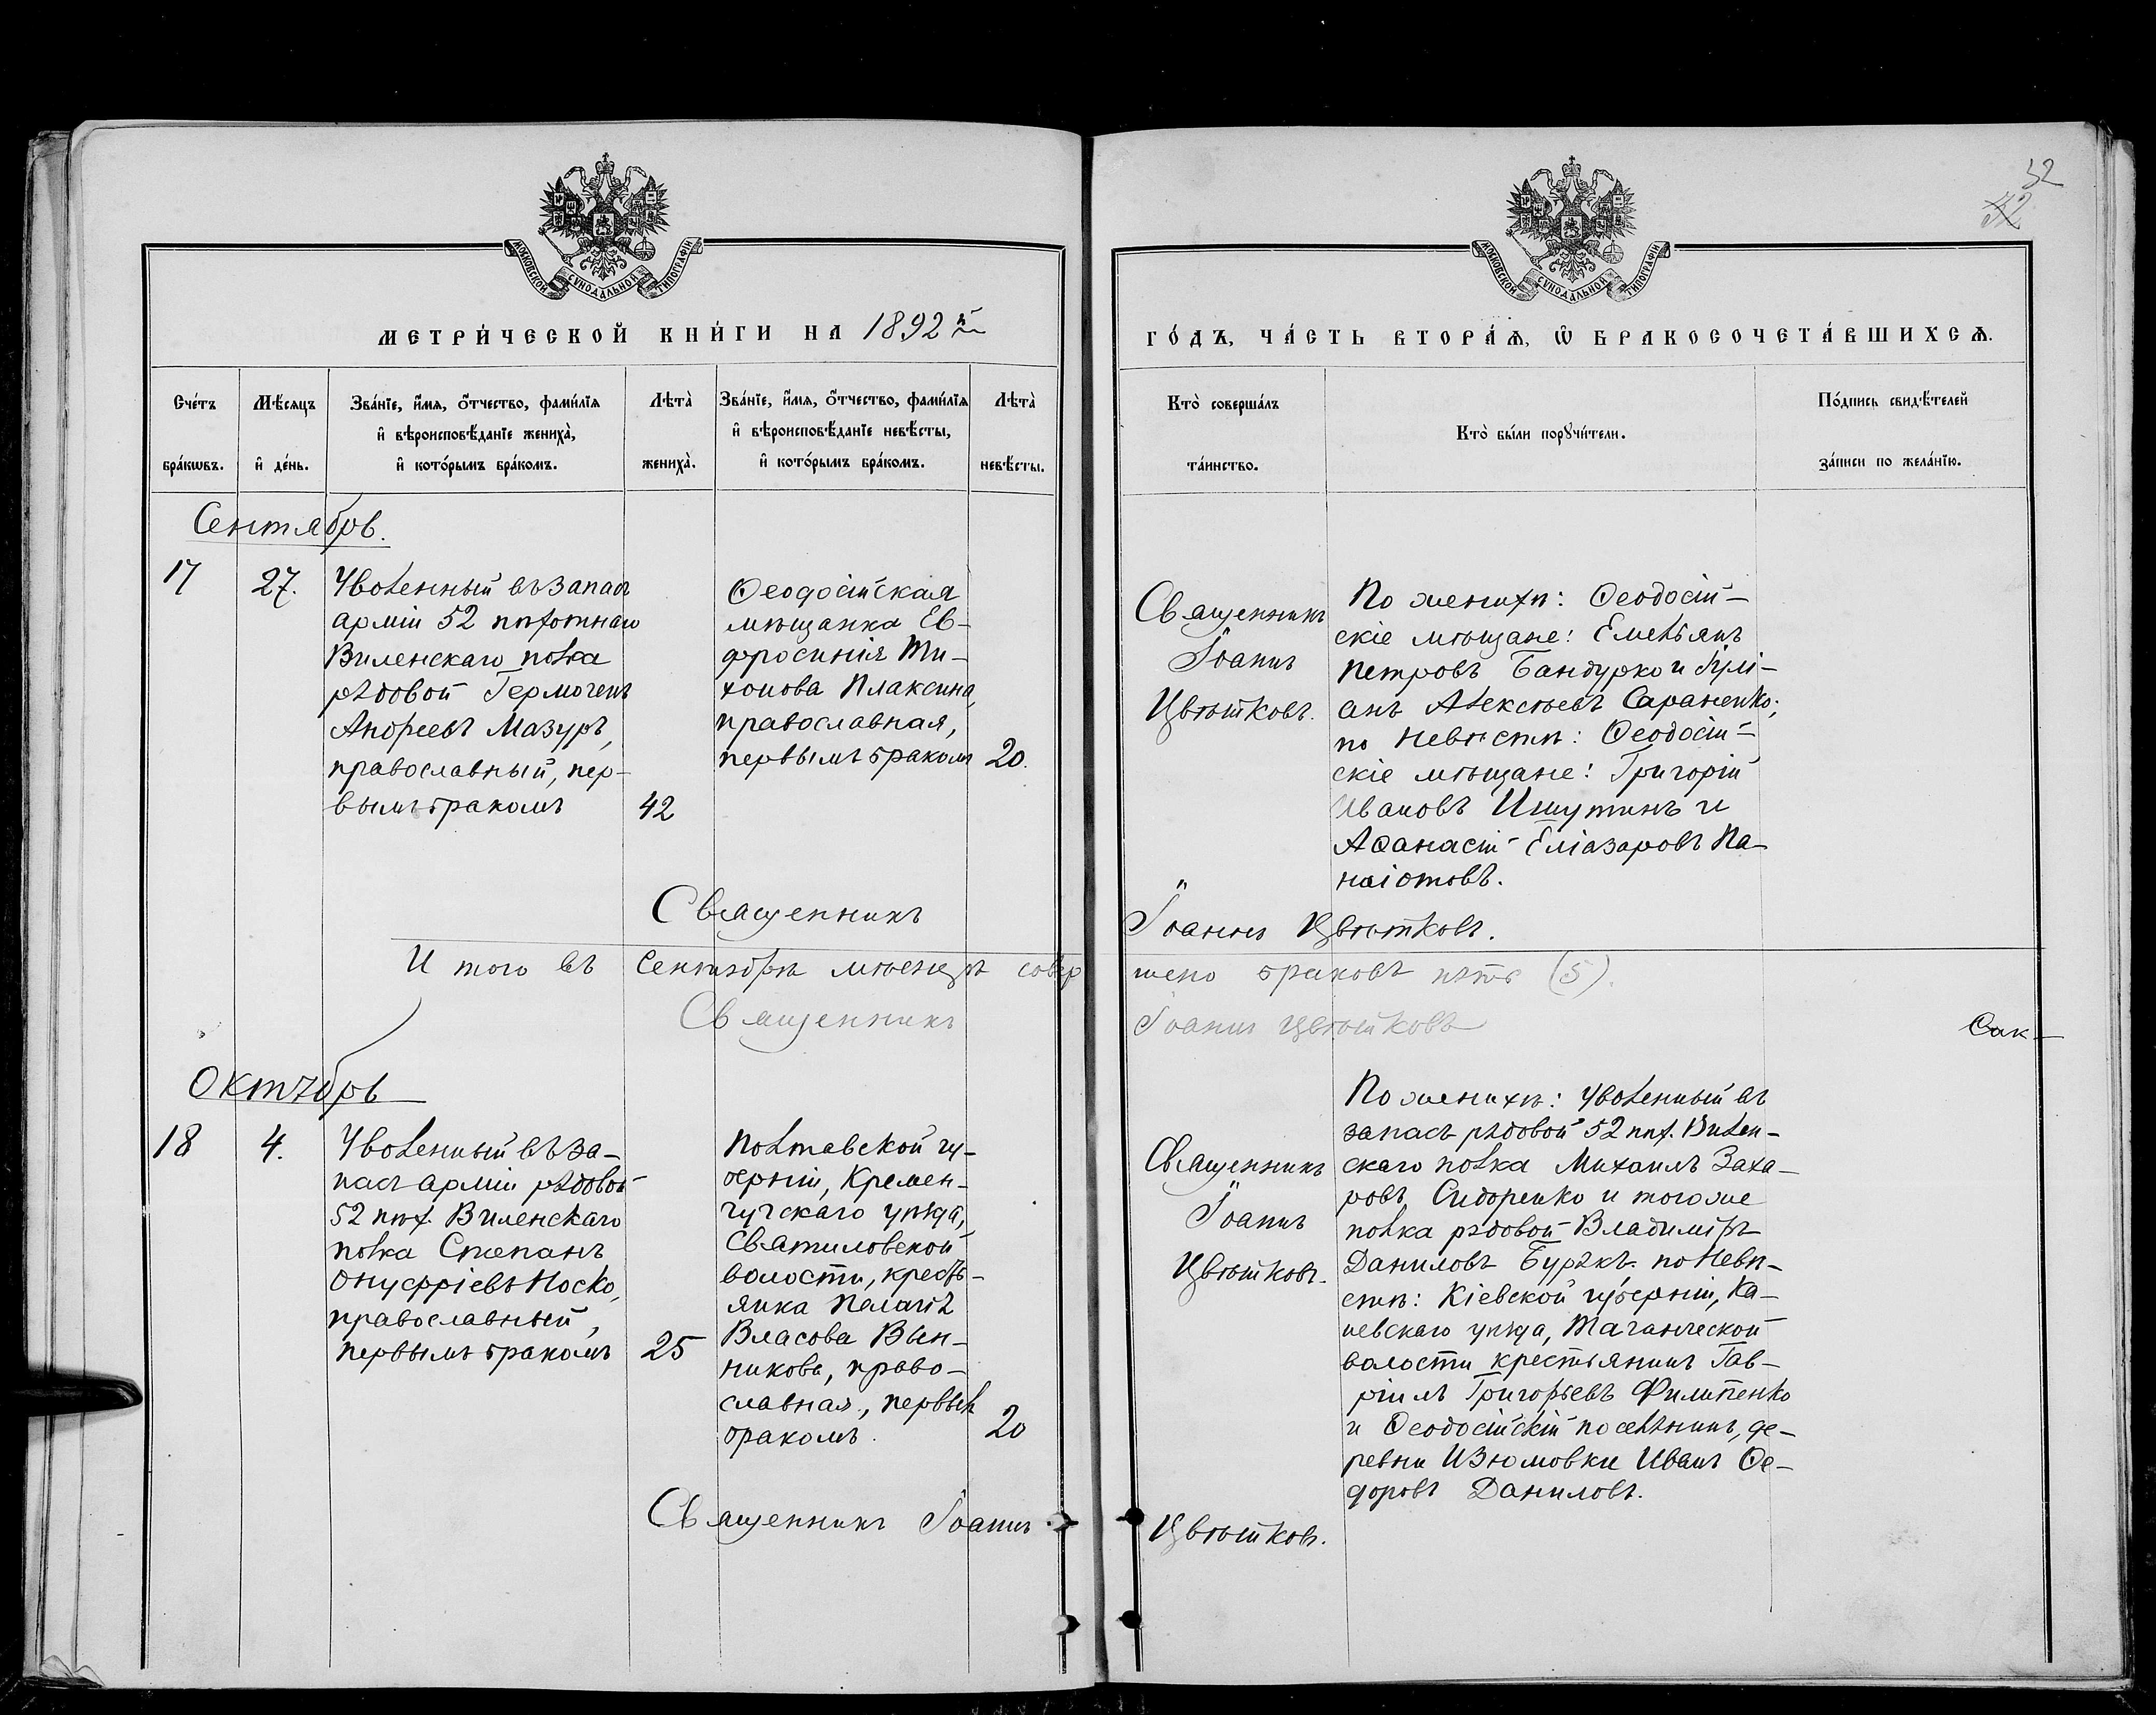 32
МОСКОВСКОЙ СѴНОДАЛЬНОЙ ТИПОГРАФІИ
МОСКОВСКОЙ СѴНОДАЛЬНОЙ ТИПОГРАФІИ
МЕТРИ́ЧЕСКОЙ КНИ́ГИ НА 1892 й
ГО́ДЪ, ЧА́СТЬ ВТОРА́Ѧ, Ѽ БРАКОСОЧЕТА́ВШИХСѦ.
Сче́тъ
бра́кѡвъ.
Мѣ́сяцъ
и҆ де́нь.
Зва́нїе, и҆́мя, ѻ҆́тчество, фами́лїя
и҆ вѣроисповѣ́данїе жениха̀,
и҆ кото́рымъ бра́комъ.
Лѣта̀
жениха̀.
Зва́нїе, и҆́мя, ѻ҆́тчество, фами́лїя
и҆ вѣроисповѣ́данїе невѣ́сты,
и҆ кото́рымъ бра́комъ.
Лѣта̀
невѣ́сты.
Кто̀ соверша́лъ
та́инство.
Кто̀ бы́ли порꙋчи́тели.
По́дпись свидѣ́телей
за́писи по жела́нїю.
Сентябрь.
17
27.
Уволенный въ запасъ
арміи 52 пѣхотнаго
Виленскаго полка
рядовой Гермогенъ
Андреевъ Мазуръ,
православный, пер-
вымъ бракомъ
42
Ѳеодосійская
мѣщанка Ев-
фросинія Ти-
хонова Плаксина,
православная,
первымъ бракомъ
20.
Священникъ
Іоаннъ
Цвѣтковъ.
По женихѣ: Ѳеодосій-
скіе мѣщане: Емельянъ
Петровъ Бандурко и Іулі-
анъ Алексѣевъ Сараненко;
по невѣстѣ: Ѳеодосій-
скіе мѣщане: Григорій
Ивановъ Ишутинъ и
Аѳанасій Еліазаровъ Па-
наіотовъ.
Священникъ Іоаннъ Цвѣтковъ.
И того въ Сентябрѣ мѣсяцѣ совершено браковъ пять (5).
Священникъ Іоаннъ Цвѣтковъ
Сак-
Октябрь
18
4.
Уволенный въ за-
пасъ арміи рядовой
52 пѣх. Виленскаго
полка Степанъ
Онуфріевъ Носко,
православный,
первымъ бракомъ
25
Полтавской гу-
берніи, Кремен-
чугскаго уѣзда,
Святиловской
волости, кресть-
янка Пелагія
Власова Вин-
никова, право-
славная, первым
бракомъ.
20
Священникъ
Іоаннъ
Цвѣтковъ.
По женихѣ: уволенный въ
запасъ рядовой 52 пѣх. Вилен-
скаго полка Михаилъ Заха-
ровъ Сидоренко и того же
полка рядовой Владиміръ
Даниловъ Бурякъ. по невѣ-
стѣ: Кіевской губерніи, Ка-
невскаго уѣзда, Таганческой
волости крестьянинъ Гав-
ріилъ Григорьевъ Филипенко
и Ѳеодосійскій поселянинъ, де-
ревни Изюмовки Иванъ Ѳе-
доровъ Даниловъ.
Священникъ Іоаннъ Цвѣтковъ.